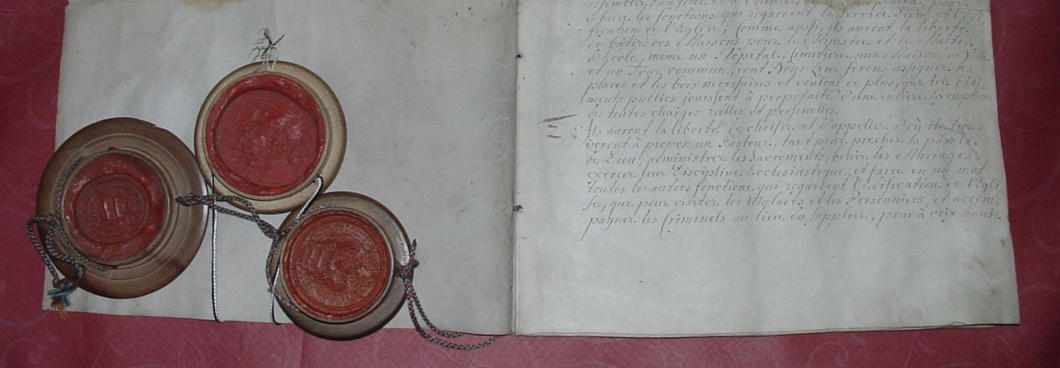 y faire les fonctions qui regardent le Service Divin, et l'édi-
fication de l'Eglise; Comme aussi, ils auront la liberté
de bâtir des Maisons pour le Ministre et le Maître
d'Ecole, même un Hôpital, Cimetière, une Maison de Ville
et un Four commun, dont Nous leur ferons assigner les
places et les bois necessaires et voulons de plus, que tels Edifi-
ments publics jouissent à perpetuité d'une entière Exemption
de toutes charges réelles et personelles.
Ils auront la liberté de choisir, et d'appeller d'où ils trou-
veront à propos un Pasteur, tant pour precher la parole
de Dieu, administrer les Sacrements, bénir les Mariages
exercer leur Discipline Ecclesiastique, et faire en un mot
toutes les autres fonctions, qui regardent l'édification de l'Egli-
se, que pour visiter les Malades et les Prisonniers, et accom-
pagner les Criminels au lieu du Supplice, pour à voix haute